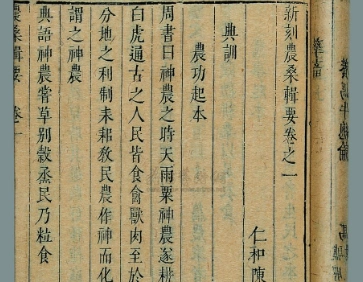 新刻農桑輯要卷之一
仁和陳
典訓
農功起本
周書曰神農之時天雨粟神農遂耕
白虎通古之人民皆食禽獸肉至於
分地之利制耒耜教民農作神而化
謂之神農
典語神農嘗草別穀烝民乃粒食
農桑輯要 卷一